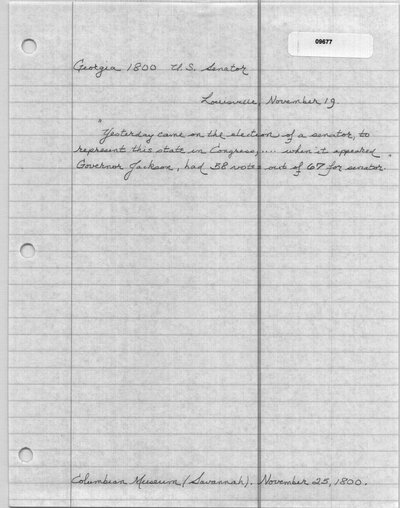 09677
Georgia 1800 U.S. Senator
Louisville, November 19
"Yesterday came on the election of a senator, to
represent this state in Congress, .... when it appeared
Governor Jackson, had 58 votes out of 67 for senator."
Columbian Museum (Savannah). November 25, 1800.